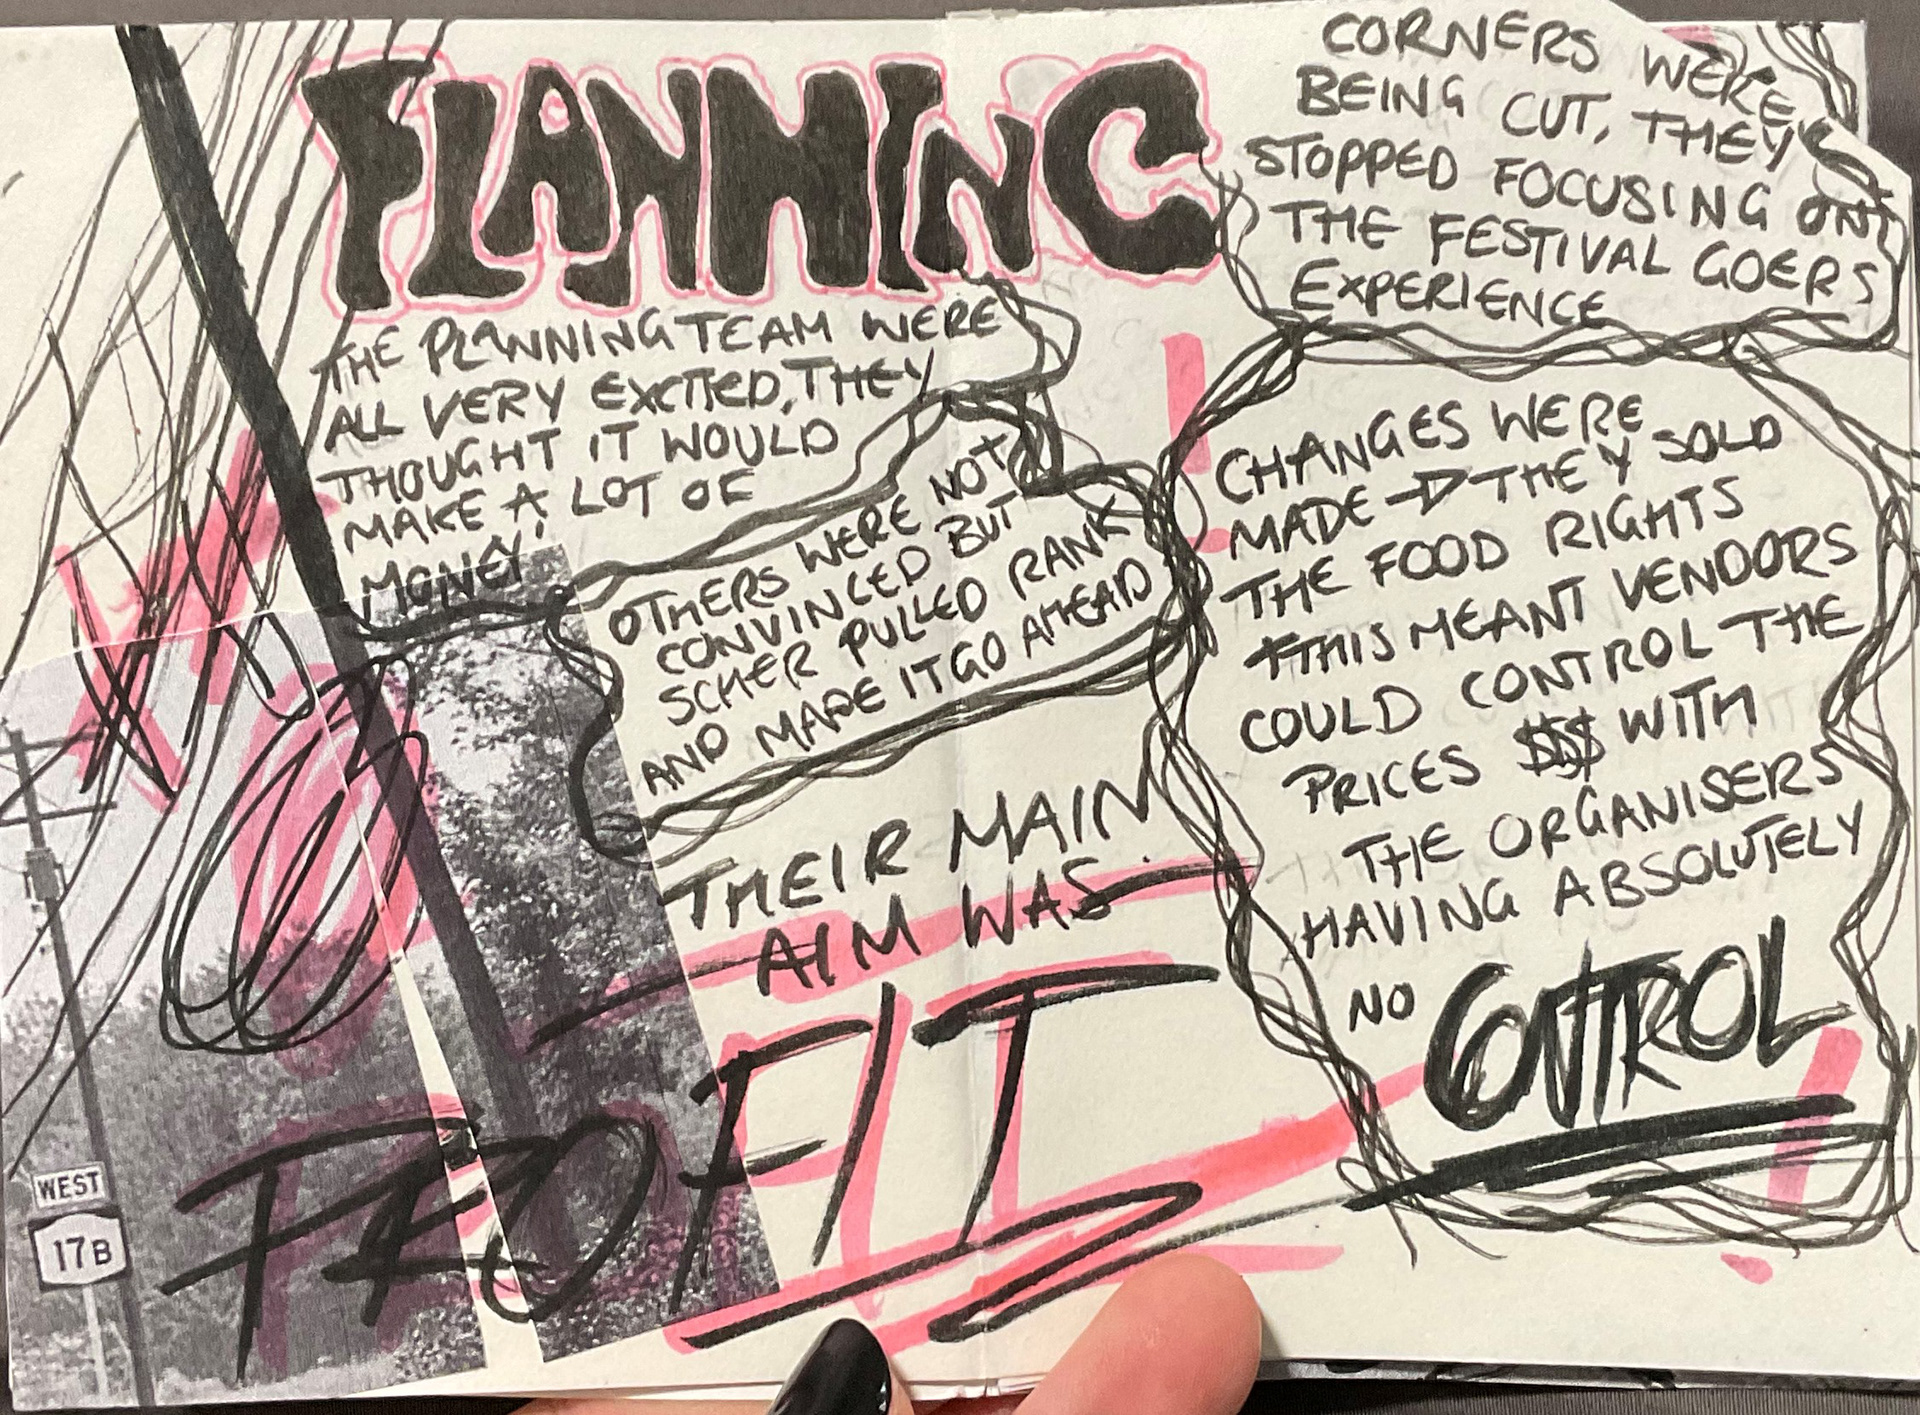 PLANNING
THE PLANNING TEAM WERE
ALL VERY EXCITED, THEY
THOUGHT IT WOULD
MAKE A LOT OF
MONEY!
OTHERS WERE NOT
CONVINCED BUT
SCHER PULLED RANK
AND MADE IT GO AHEAD
THEIR MAIN
AIM WAS
PROFIT
WEST
17B
CORNERS WERE
BEING CUT, THEY
STOPPED FOCUSING ON
THE FESTIVAL GOERS
EXPERIENCE
CHANGES WERE
MADE → THEY SOLD
THE FOOD RIGHTS
THIS MEANT VENDORS
COULD CONTROL THE
PRICES $$$ WITH
THE ORGANISERS
HAVING ABSOLUTELY
NO CONTROL